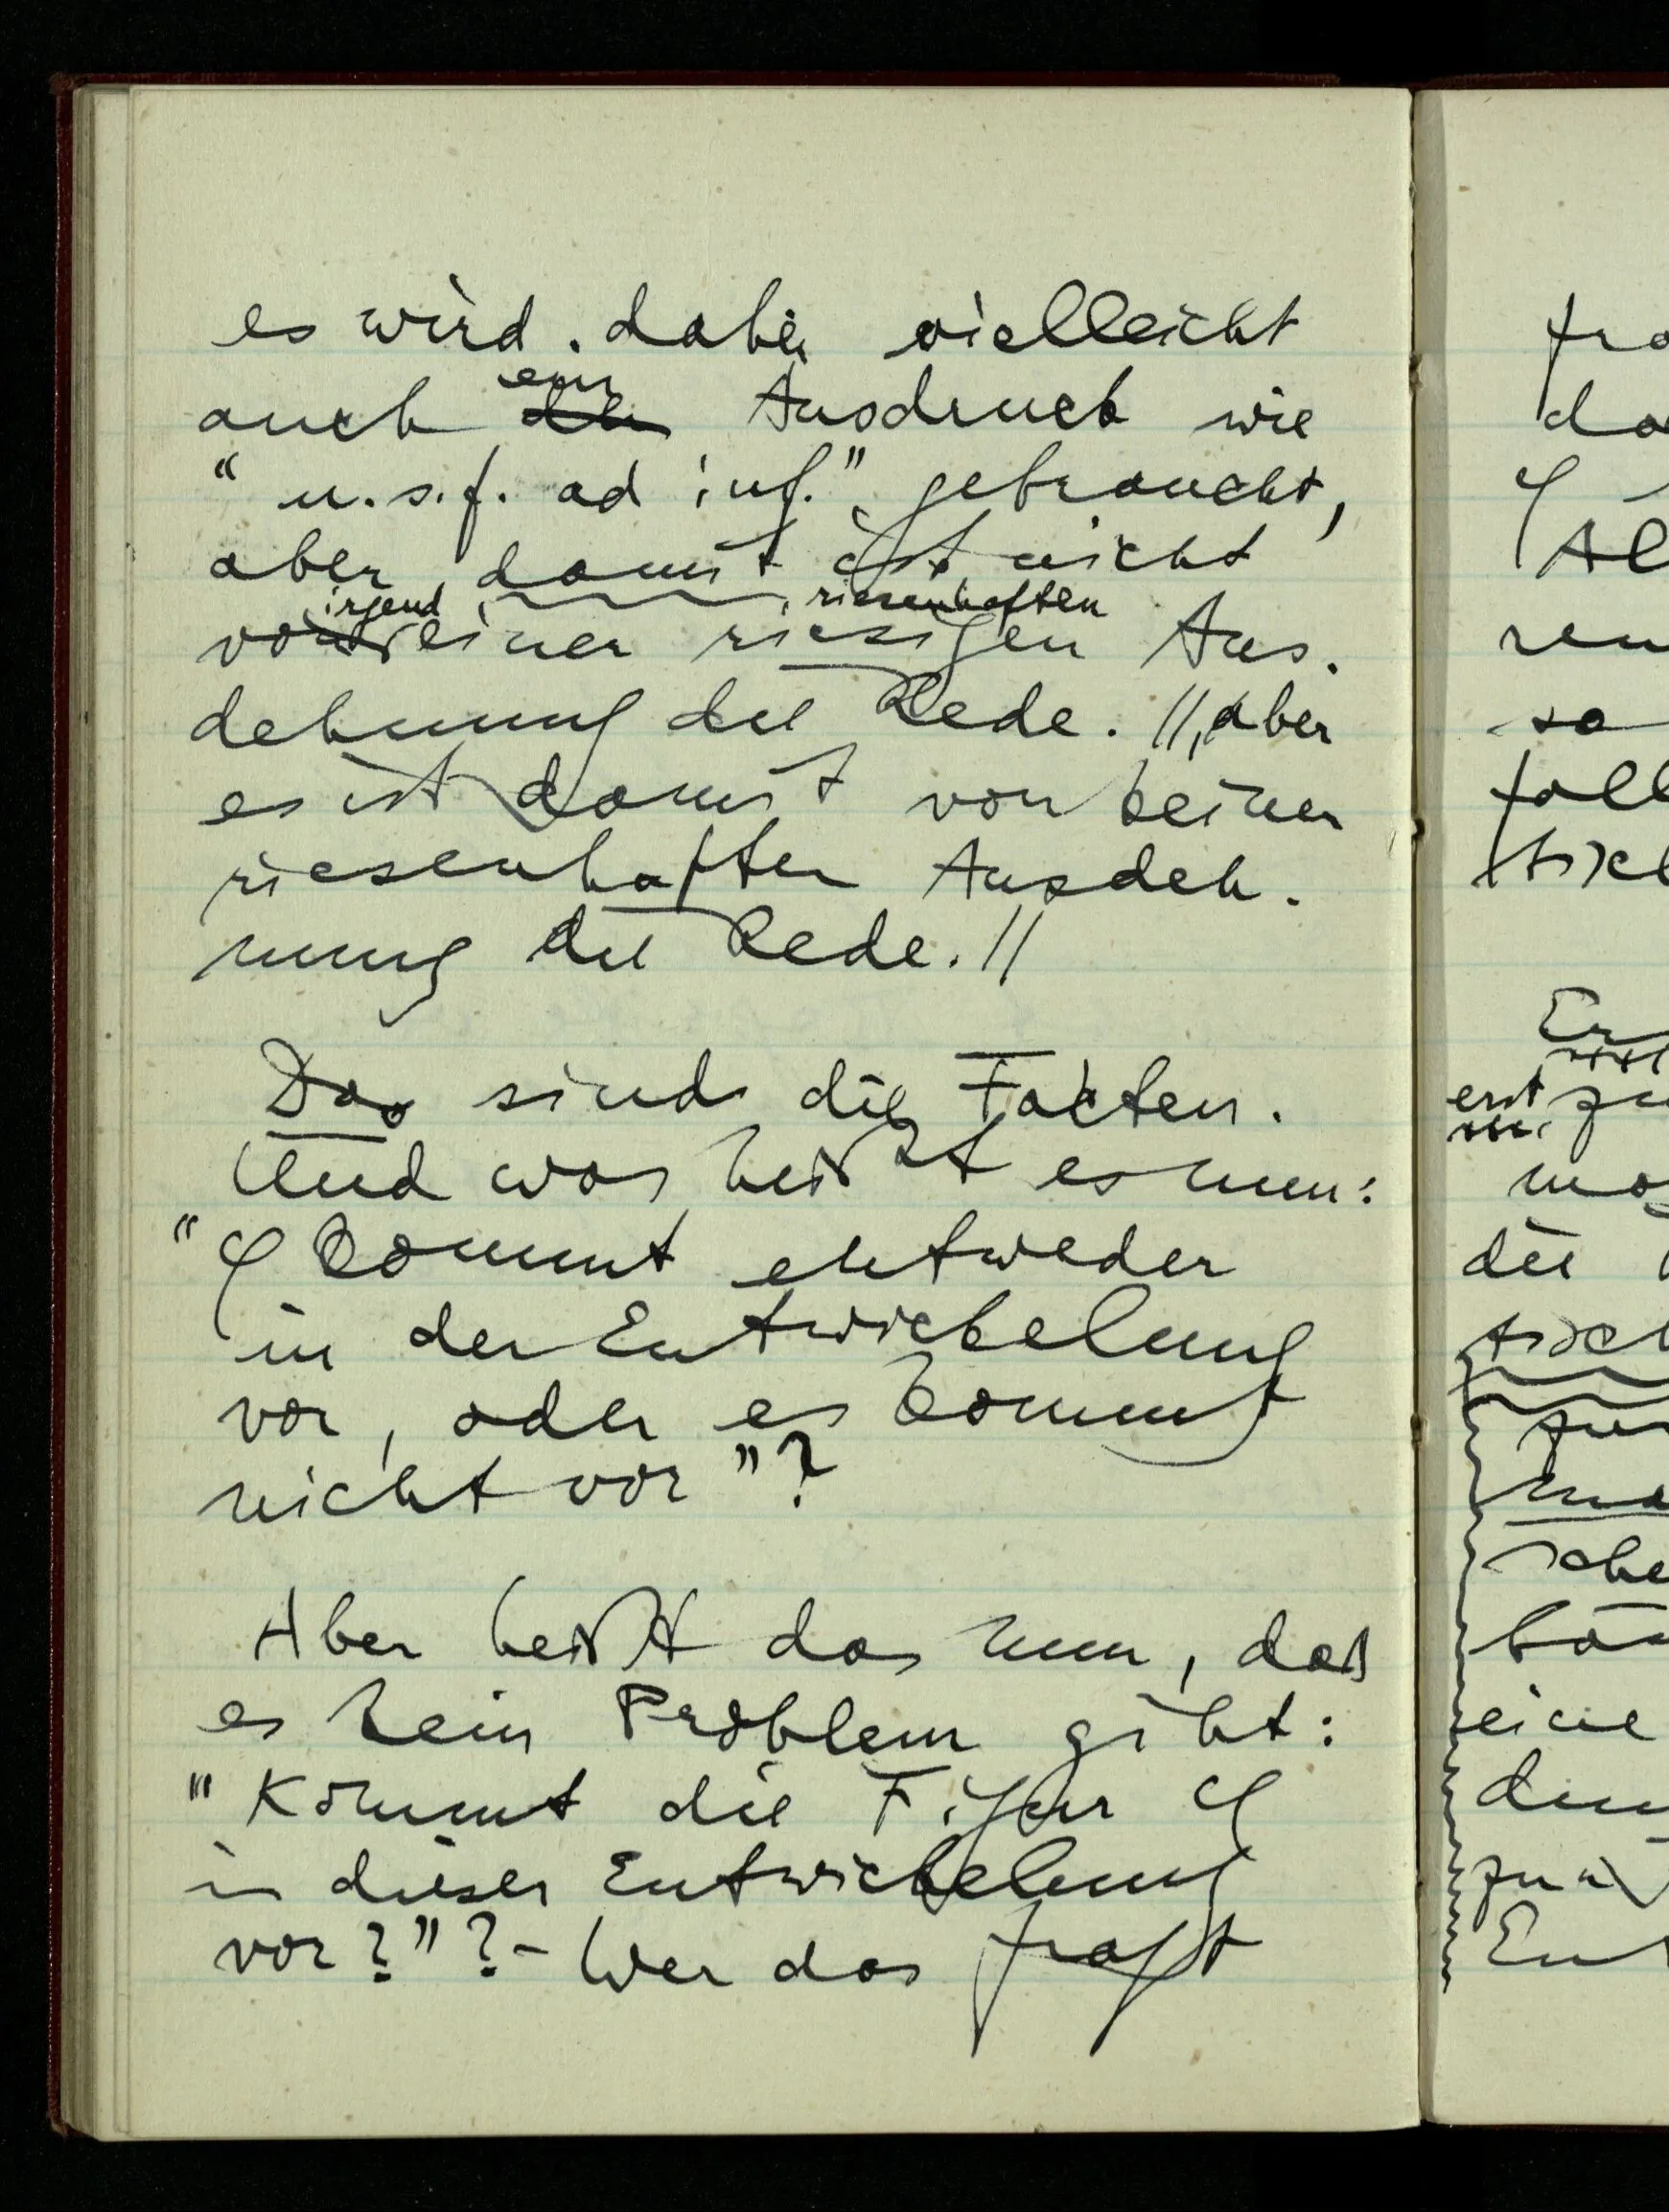 es wird dabei vielleicht
auch ein Ausdruck wie
“u.s.f. ad inf.” gebraucht,
aber damit ist nicht
irgend riesenhaften
von einer riesigen Aus-
dehnung die Rede. //, aber
es ist damit von keiner
riesenhaften Ausdeh-
nung die Rede. //
Das sind die Fakten.
Und was heißt es nun:
“φ kommt entweder
in der Entwickelung
vor, oder es kommt
nicht vor”?
Aber heißt das nun, daß
es kein Problem gibt:
"Kommt die Figur φ
in dieser Entwickelung
vor?”? – Wer das fragt
da
φ
Al
so
die
eine